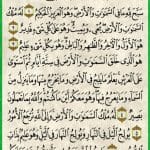 سَبَّحَ لِلَّهِ مَا فِي السَّمَٰوَٰتِ وَالْأَرْضِ وَهُوَ الْعَزِيزُ الْحَكِيمُ لَهُ مُلْكُ
السَّمَٰوَٰتِ وَالْأَرْضِ يُحْيِي وَيُمِيتُ وَهُوَ عَلَىٰ كُلِّ شَيْءٍ قَدِيرٌ
هُوَ الْأَوَّلُ وَالْآخِرُ وَالظَّاهِرُ وَالْبَاطِنُ وَهُوَ بِكُلِّ شَيْءٍ عَلِيمٌ
هُوَ الَّذِي خَلَقَ السَّمَٰوَٰتِ وَالْأَرْضَ فِي سِتَّةِ أَيَّامٍ ثُمَّ اسْتَوَىٰ
عَلَى الْعَرْشِ يَعْلَمُ مَا يَلِجُ فِي الْأَرْضِ وَمَا يَخْرُجُ مِنْهَا وَمَا يَنزِلُ مِنَ
السَّمَاءِ وَمَا يَعْرُجُ فِيهَا وَهُوَ مَعَكُمْ أَيْنَ مَا كُنتُمْ وَاللَّهُ بِمَا تَعْمَلُونَ
بَصِيرٌ لَهُ مُلْكُ السَّمَٰوَٰتِ وَالْأَرْضِ وَإِلَى اللَّهِ تُرْجَعُ الْأُمُورُ
يُولِجُ اللَّيْلَ فِي النَّهَارِ وَيُولِجُ النَّهَارَ فِي اللَّيْلِ وَهُوَ عَلِيمٌ